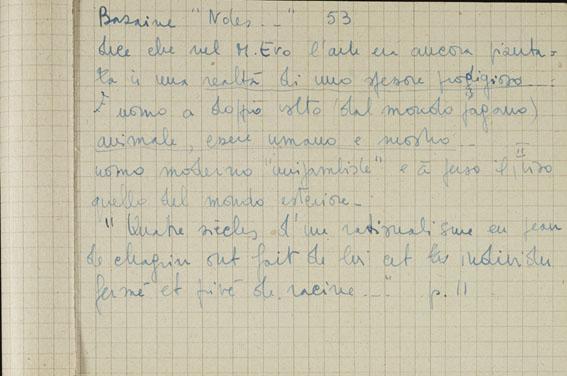 Bazaine "Notes..." 53
dice che nel M. Evo l'arte era ancora pianta=
ta in una realtà di uno spessore prodigioso
È uomo a doppio volto (dal mondo pagano)
animale, essere umano e mostro...
uomo moderno "unijambiste" e à perso il II viso
quello del mondo esteriore_
"Quatre siècles d'un rationalisme en peau
de chagrin ont fait de lui cet individu
fermé et privé de racine..." p. 11